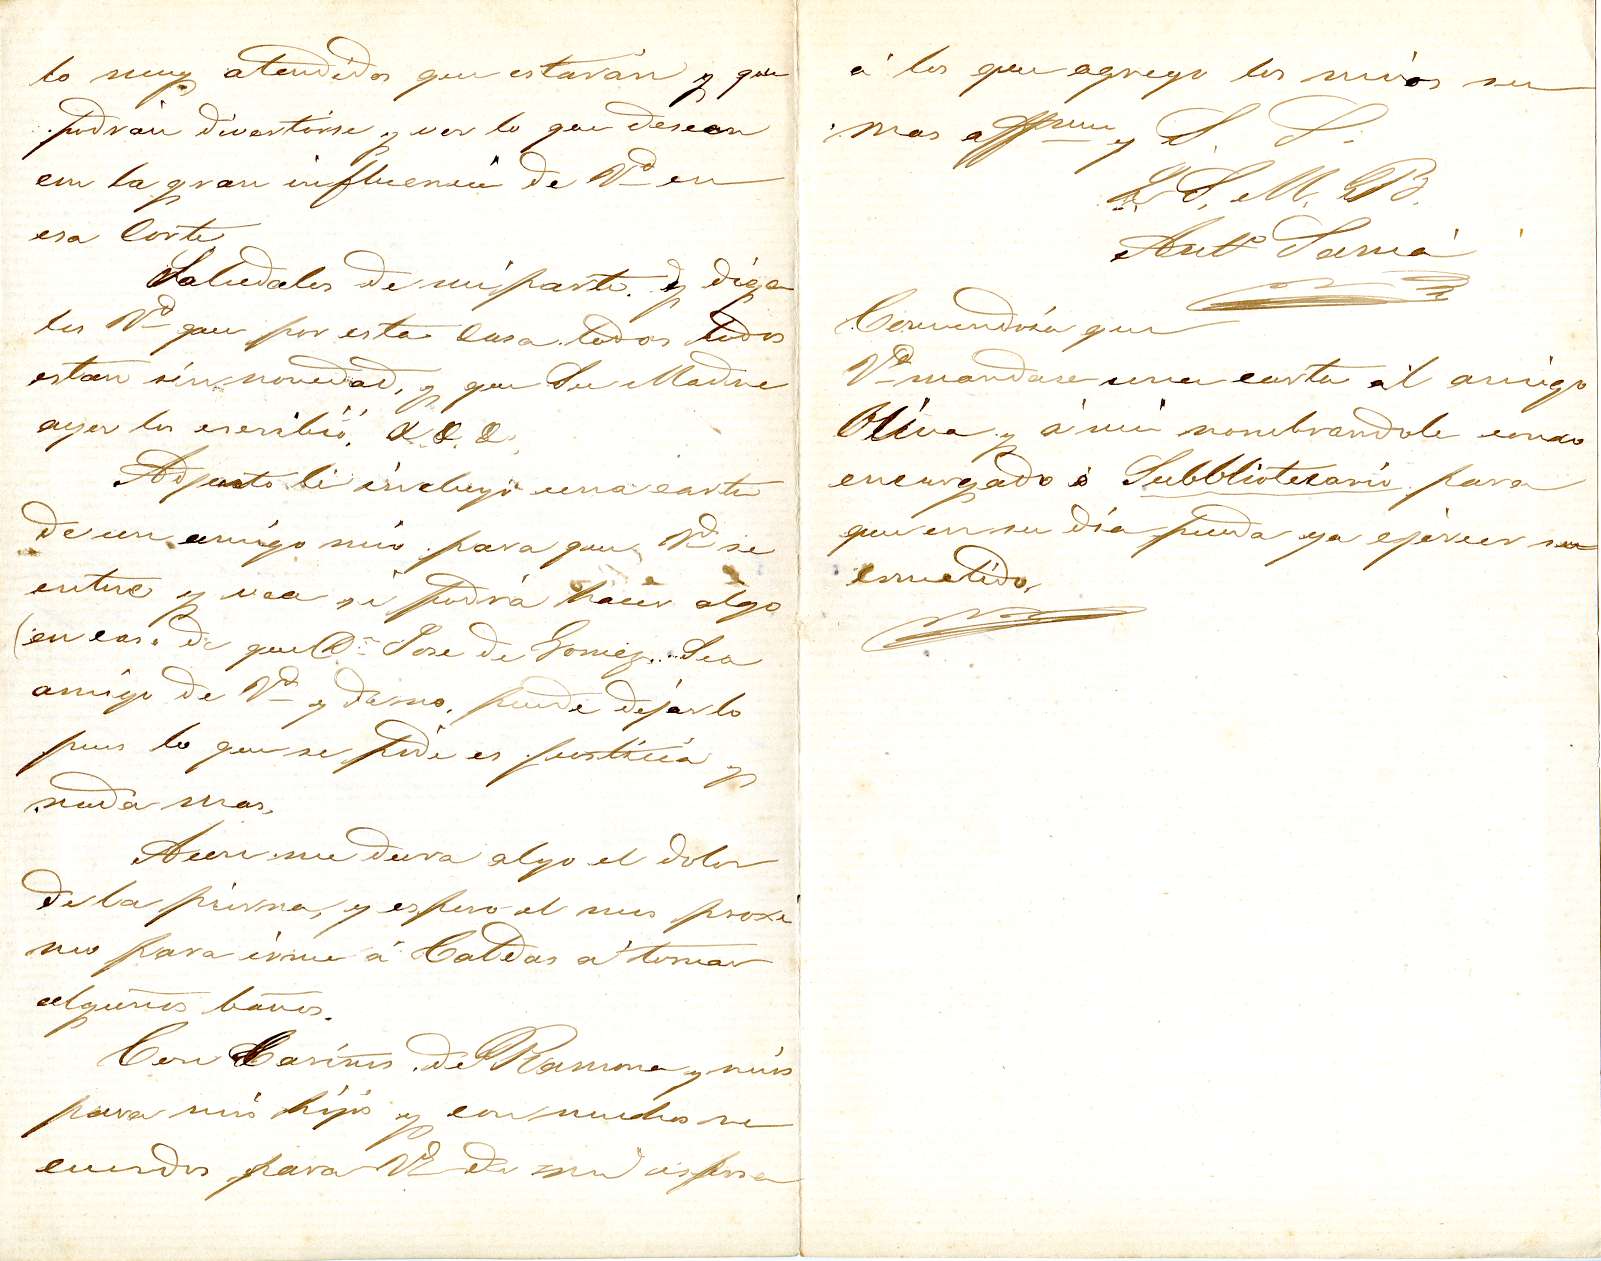 lo muy atendidos que estarán y que
podrán divertirse y ver lo que desean
con la gran influencia de Vd en
esa Corte.
Saludales de mi parte. y diga
les Vd que por esta casa todos todos
estan sin novedad, y que Su Madre
ayer les escribió, &.&.&.
Adjunto le incluyo una carta
de un amigo mio para que Vd se
entere y vea si podrá hacer algo
(en caso de que Dn Jose de Gomez.. Sea
amigo de Vd y demo. puede dejarlo
pues lo que se pide es justicia y
nada mas.
Aun me dura algo el dolor
de la pierna, y espero el mes proxi
mo para irme á Caldas á tomar
algunos baños.
Con Cariños de Ramona y mios
para mis hijos y con muchos re
cuerdos para Vd de mi esposa
á los que agrego los mios su
mas affmo y S. S.
Q. S. M. B.
Anto Samá
Convendria que
Vd mandase una carta al amigo
Oliva y á mi nombrandole como
encargado ó Subbliotecario para
que en su dia pueda ya ejercer su
cometido.